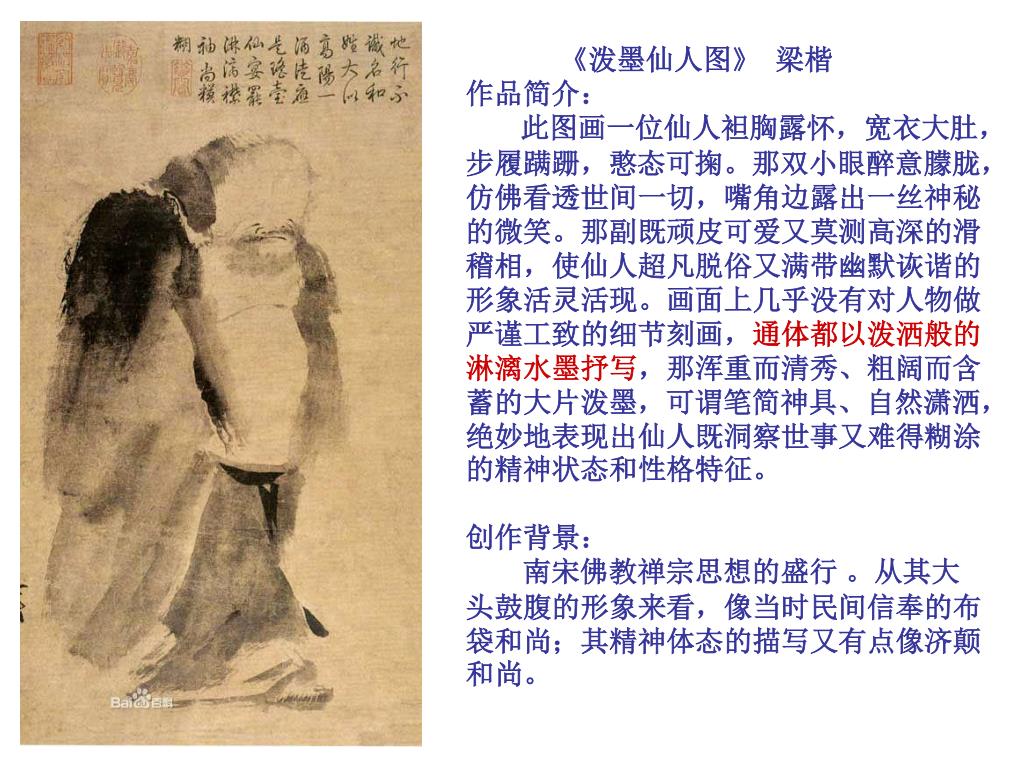 地行不
識名和
姓大似
高陽一
酒徒應
是瑤臺
仙宴罷
淋漓襟
袖尚模
糊
《泼墨仙人图》 梁楷
作品简介：
此图画一位仙人袒胸露怀，宽衣大肚，
步履蹒跚，憨态可掬。那双小眼醉意朦胧，
仿佛看透世间一切，嘴角边露出一丝神秘
的微笑。那副既顽皮可爱又莫测高深的滑
稽相，使仙人超凡脱俗又满带幽默诙谐的
形象活灵活现。画面上几乎没有对人物做
严谨工致的细节刻画，通体都以泼洒般的
淋漓水墨抒写，那浑重而清秀、粗阔而含
蓄的大片泼墨，可谓笔简神具、自然潇洒，
绝妙地表现出仙人既洞察世事又难得糊涂
的精神状态和性格特征。
创作背景：
南宋佛教禅宗思想的盛行 。从其大
头鼓腹的形象来看，像当时民间信奉的布
袋和尚；其精神体态的描写又有点像济颠
和尚。
Bai百科